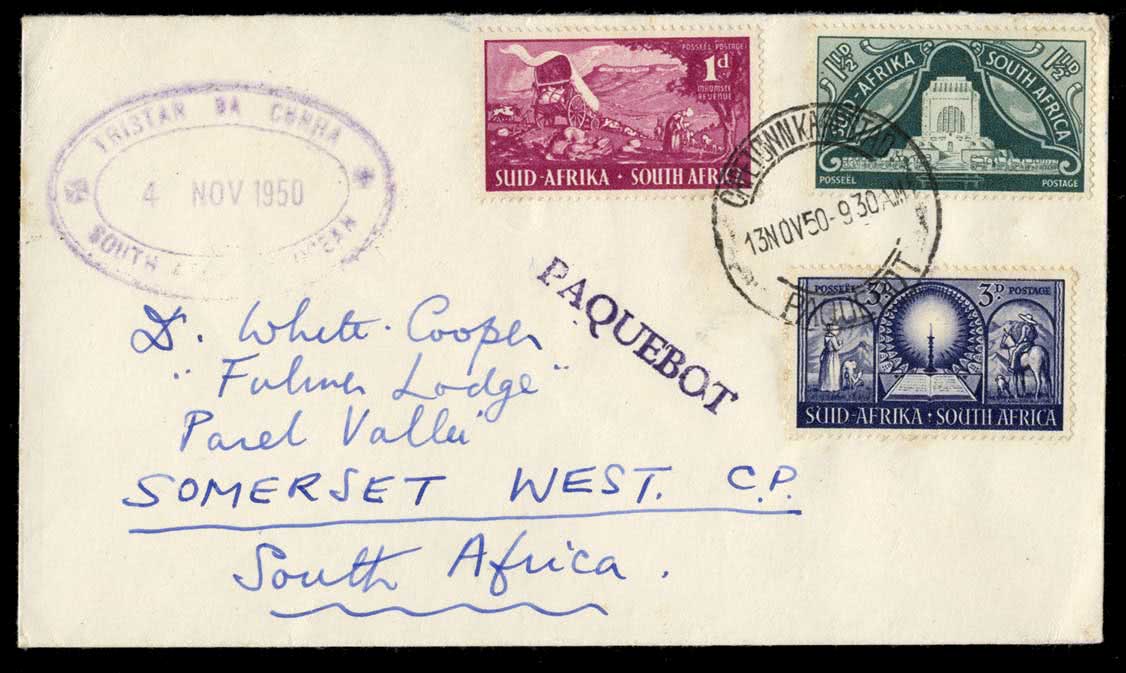 TRISTAN DA CUNHA
4 NOV 1950
SOUTH
POSSEËL POSTAGE
1d
INKOMSTE
REVENUE
SUID-AFRIKA · SOUTH AFRICA
1½D
SUID AFRIKA SOUTH AFRICA
1½D
POSSEËL POSTAGE
13 NOV 50 - 9 30 AM
PAQUEBOT
PAQUEBOT
POSSEËL 3D 3D POSTAGE
SUID-AFRIKA · SOUTH AFRICA
Dr. White-Cooper
"Fulmer Lodge"
Parel Vallei
SOMERSET WEST. C.P.
South Africa.